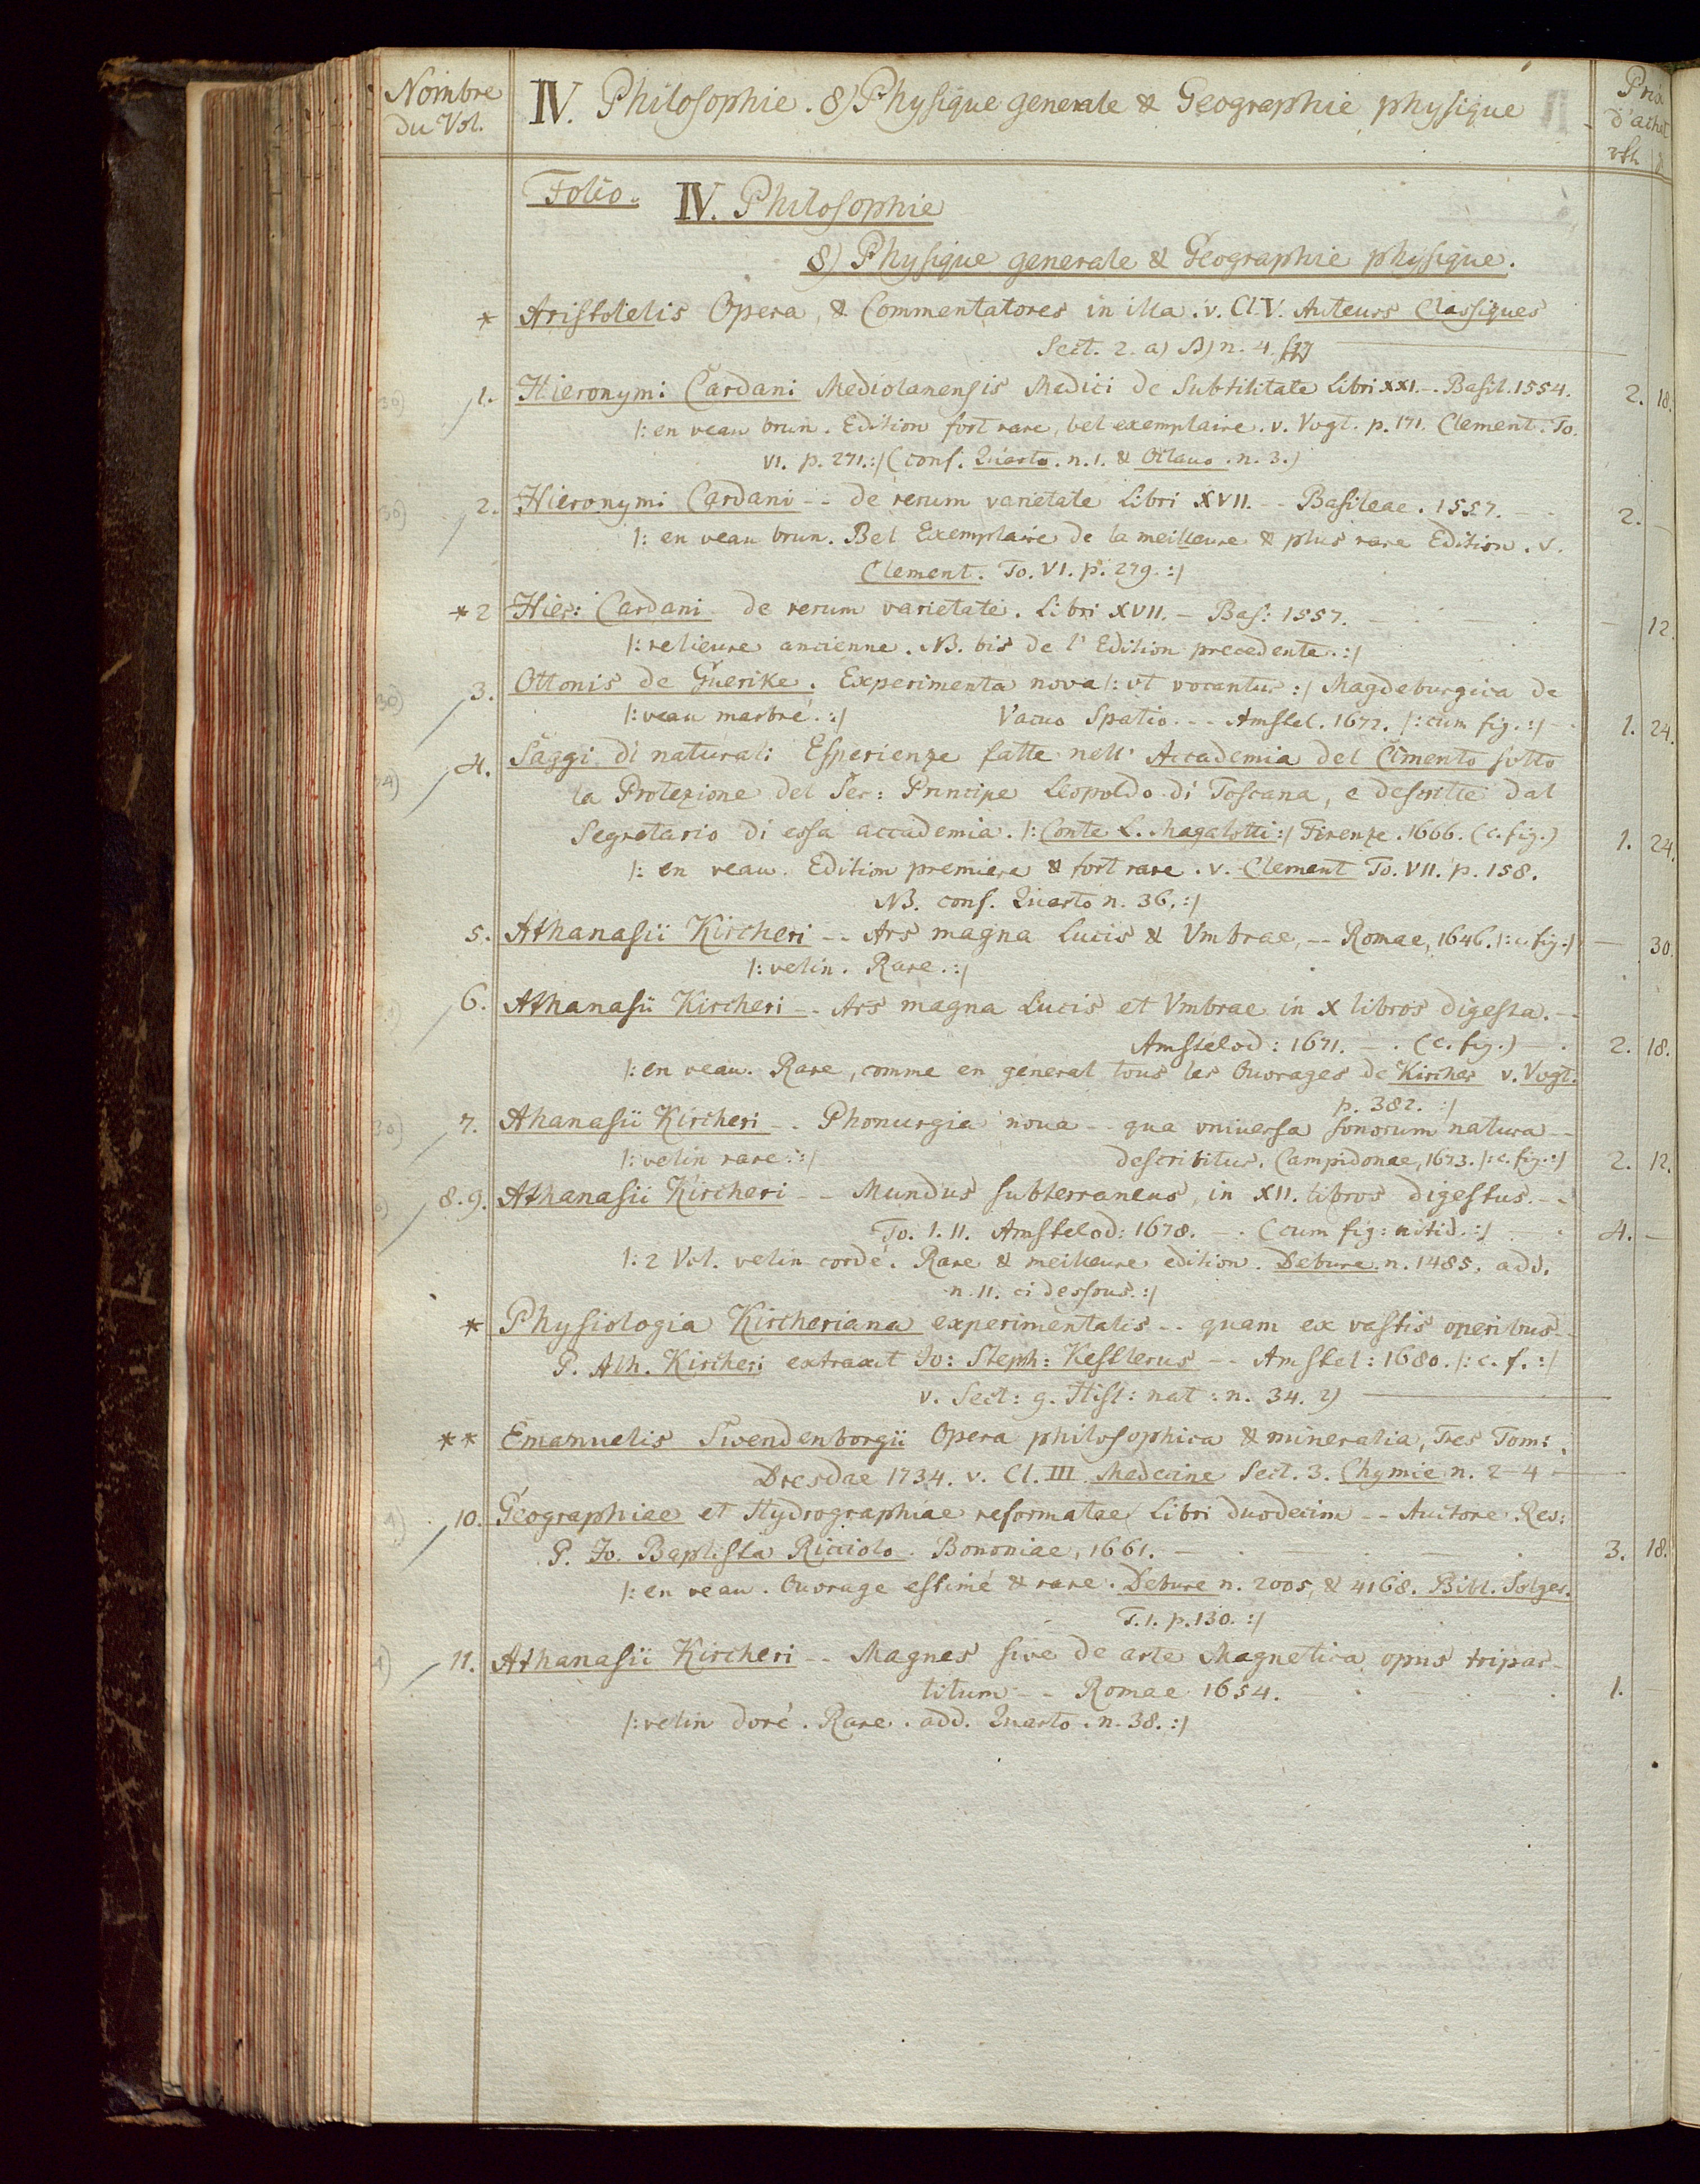 Nombre du Vol.
IV. Philosophie. 8) Physique generale & Geographie physique
Prix d'achat
rth
Folio. IV. Philosophie
8) Physique generale & Geographie physique.
* Aristotelis Opera, & Commentatores in illa. v. Cl. V. Auteurs Classiques
Sect. 2. a) B) n. 4. sqq
1. Hieronymi Cardani Mediolanensis Medici de Subtilitate Libri XXI. - Basil. 1554. 2. 18.
/: en veau brun. Edition fort rare, bel exemplaire. v. Vogt. p. 171. Clement. To.
VI. p. 271. :/ (conf. Quarto. n. 1. & Octavo. n. 3.)
2. Hieronymi Cardani -- de rerum varietate Libri XVII. -- Basileae. 1557. - 2. -
/: en veau brun. Bel Exemplaire de la meilleure & plus rare Edition. v.
Clement. To. VI. p. 279. :/
*2 Hier: Cardani de rerum varietate. Libri XVII. - Bas: 1557. - 12.
/: relieure ancienne. NB. bis de l'Edition precedente. :/
3. Ottonis de Guerike. Experimenta nova /: vt vocantur :/ Magdeburgica de
/: veau marbré. :/ Vacuo Spatio. -- Amstel. 1672. /: cum fig. :/ - 1. 24.
4. Saggi di naturali Esperienze fatte nell' Accademia del Cimento sotto
la Protezione del Ser: Principe Leopoldo di Toscana, e descritte dal
Segretario di essa accademia. /: Conte L. Magalotti :/ Firenze. 1666. (c. fig.) 1. 24.
/: en veau. Edition premiere & fort rare. v. Clement To. VII. p. 158.
NB. conf. Quarto n. 36. :/
5. Athanasii Kircheri -- Ars magna Lucis & Vmbrae, -- Romae, 1646. /: c. fig. :/ - 30.
/: velin. Rare. :/
6. Athanasii Kircheri -- Ars magna Lucis et Vmbrae in X libros digesta. -
Amstelod: 1671. - . (c. fig.) - 2. 18.
/: en veau. Rare, comme en general tous les Ouvrages de Kircher v. Vogt.
p. 382. :/
7. Ahanasii Kircheri -- Phonurgia noua -- qua vniuersa sonorum natura --
/: velin rare. :/ describitur. Campidonae, 1673. /: c. fig. :/ 2. 12.
8. 9. Athanasii Kircheri -- Mundus subterraneus, in XII. libros digestus. --
To. I. II. Amstelod: 1678. - . (cum fig: nitid. :/ 4. -
/: 2 Vol. velin cordé. Rare & meilleure edition. Debure n. 1485. add.
n. 11. ci dessous. :/
* Physiologia Kircheriana experimentalis -- quam ex vastis operibus --
P. Ath. Kircheri extraxit Jo: Steph: Kestlerus -- Amstel: 1680. /: c. f. :/
v. Sect: 9. Hist: nat: n. 34. 2)
** Emanuelis Swendenborgii Opera philosophica & mineralia, Tres Tom:
Dresdae 1734. v. Cl. III Medecine Sect. 3. Chymie n. 2-4
10. Geographiae et Hydrographiae reformatae Libri duodecim -- Auctore Rev:
P. Jo. Baptista Ricciolo. Bononiae, 1661. - 3. 18.
/: en veau. Ouvrage estimé & rare. Debure n. 2005, & 4168. Bibl. Solger.
T. 1. p. 130. :/
11. Athanasii Kircheri -- Magnes sive de arte Magnetica opus tripar-
titum -- Romae 1654. 1.
/: velin doré. Rare. add. Quarto. n. 38. :/